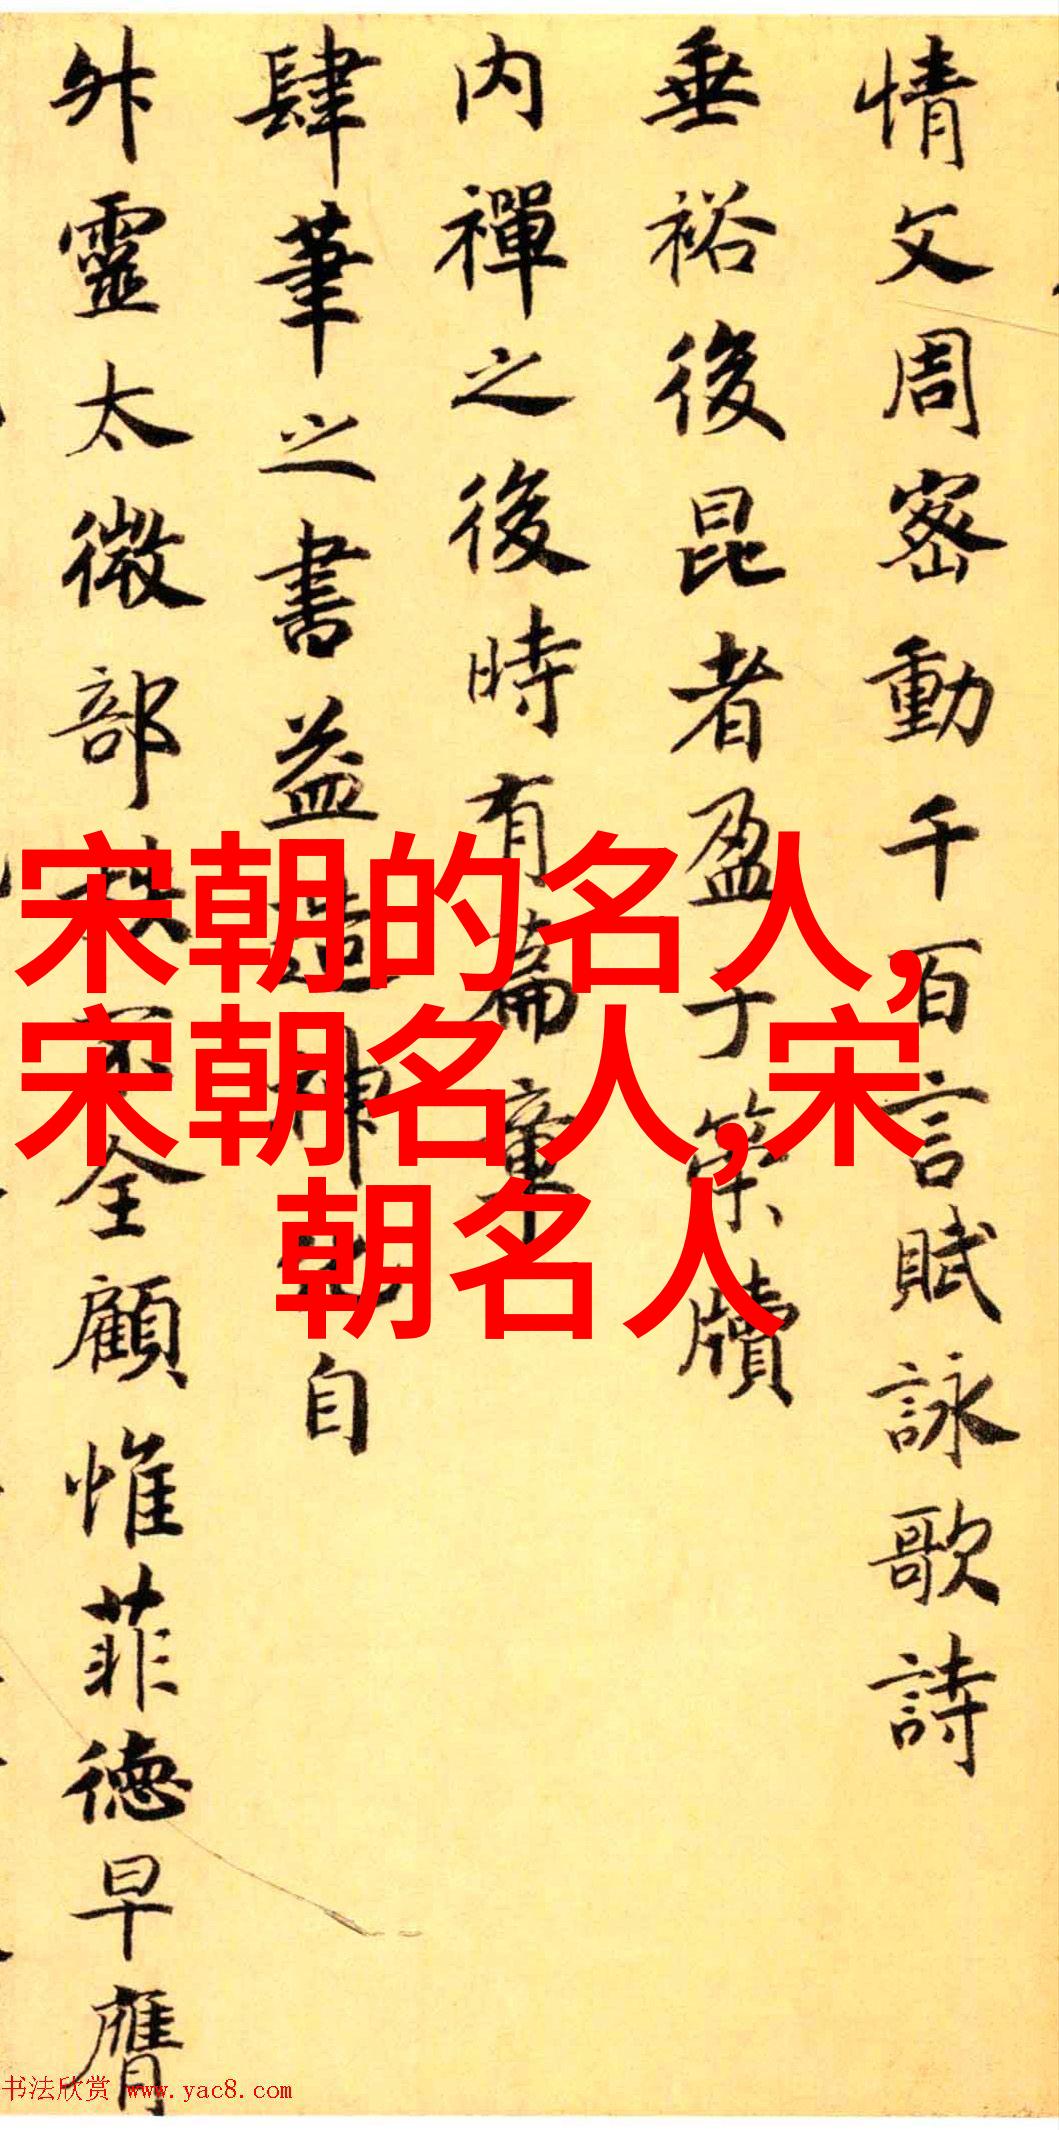 情文周密動千百言賦詠歌詩
垂裕後昆者盈于築牘
內禪之後時有篇章
肆筆之書益造神化自
外靈太微部秩不全顧惟菲德早膺
宋朝的名人,
宋朝名人,宋
朝名人
书法欣赏 www.yac8.com